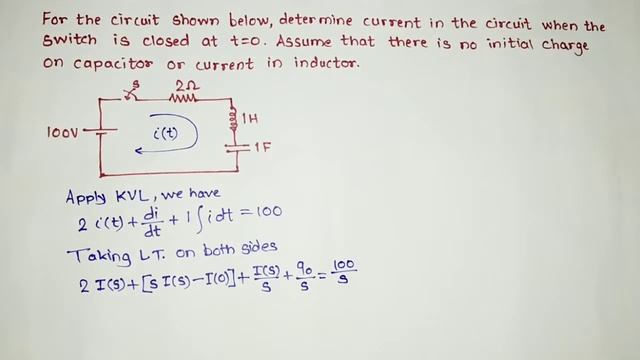 For the circuit shown below, determine current in the circuit when the
switch is closed at t=0. Assume that there is no initial charge
on capacitor or current in inductor.
S
2Ω
100V
i(t)
1H
1F
Apply KVL, we have
2 i(t) + di/dt + 1 ∫ i dt = 100
Taking L.T. on both sides
2 I(s) + [s I(s) − I(0)] + I(s)/s + q₀/s = 100/s